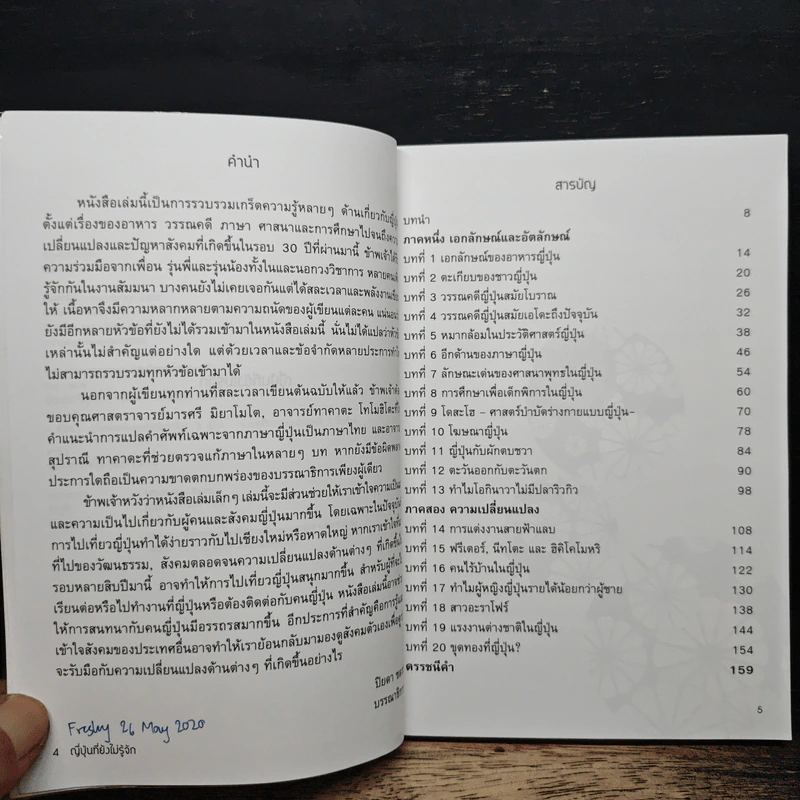 คำนำ
หนังสือเล่มนี้เป็นการรวบรวมเกร็ดความรู้หลายๆ ด้านเกี่ยวกับญี่ปุ่น
ตั้งแต่เรื่องของอาหาร วรรณคดี ภาษา ศาสนาและการศึกษาไปจนถึง
เปลี่ยนแปลงและปัญหาสังคมที่เกิดขึ้นในรอบ 30 ปีที่ผ่านมานี้ ข้าพเจ้า
ความร่วมมือจากเพื่อน รุ่นพี่และรุ่นน้องทั้งในและนอกวงวิชาการ หลายคน
รู้จักกันในงานสัมมนา บางคนยังไม่เคยเจอกันแต่ได้สละเวลาและพลังงาน
ให้ เนื้อหาจึงมีความหลากหลายตามความถนัดของผู้เขียนแต่ละคน
ยังมีอีกหลายหัวข้อที่ยังไม่ได้รวมเข้ามาในหนังสือเล่มนี้ นั่นไม่ได้แปลว่า
เหล่านั้นไม่สำคัญแต่อย่างใด แต่ด้วยเวลาและข้อจำกัดหลายประการ
ไม่สามารถรวบรวมทุกหัวข้อเข้ามาได้
นอกจากผู้เขียนทุกท่านที่สละเวลาเขียนต้นฉบับให้แล้ว ข้าพเจ้า
ขอบคุณศาสตราจารย์มารศรี มิยาโมโต, อาจารย์ทาคาตะ โทโมฮิโตะ
คำแนะนำการแปลคำศัพท์เฉพาะจากภาษาญี่ปุ่นเป็นภาษาไทย และ
สุปราณี ทาคาดะที่ช่วยตรวจแก้ภาษาในหลายๆ บท หากยังมีข้อ
ประการใดถือเป็นความขาดตกบกพร่องของบรรณาธิการเพียงผู้เดียว
ข้าพเจ้าหวังว่าหนังสือเล่มเล็กๆ เล่มนี้จะมีส่วนช่วยให้เราเข้าใจความ
และความเป็นไปเกี่ยวกับผู้คนและสังคมญี่ปุ่นมากขึ้น โดยเฉพาะใน
การไปเที่ยวญี่ปุ่นทำได้ง่ายราวกับไปเชียงใหม่หรือหาดใหญ่ หากเราเข้าใจ
ที่ไปของวัฒนธรรม, สังคมตลอดจนความเปลี่ยนแปลงด้านต่างๆ ที่เกิดขึ้น
รอบหลายสิบปีมานี้ อาจทำให้การไปเที่ยวญี่ปุ่นสนุกมากขึ้น สำหรับผู้ที่
เรียนต่อหรือไปทำงานที่ญี่ปุ่นหรือต้องติดต่อกับคนญี่ปุ่น หนังสือเล่มนี้
ให้การสนทนากับคนญี่ปุ่นมีอรรถรสมากขึ้น อีกประการที่สำคัญคือการ
เข้าใจสังคมของประเทศอื่นอาจทำให้เราย้อนกลับมามองดูสังคมตัวเอง
จะรับมือกับความเปลี่ยนแปลงด้านต่างๆ ที่เกิดขึ้นอย่างไร
ปิยดา
Freshy 26 May 2020
4 ญี่ปุ่นที่ยังไม่รู้จัก
สารบัญ
บทนำ 8
ภาคหนึ่ง เอกลักษณ์และอัตลักษณ์
บทที่ 1 เอกลักษณ์ของอาหารญี่ปุ่น 14
บทที่ 2 ตะเกียบของชาวญี่ปุ่น 20
บทที่ 3 วรรณคดีญี่ปุ่นสมัยโบราณ 26
บทที่ 4 วรรณคดีญี่ปุ่นสมัยเอโดะถึงปัจจุบัน 32
บทที่ 5 หมากล้อมในประวัติศาสตร์ญี่ปุ่น 38
บทที่ 6 อีกด้านของภาษาญี่ปุ่น 46
บทที่ 7 ลักษณะเด่นของศาสนาพุทธในญี่ปุ่น 54
บทที่ 8 การศึกษาเพื่อเด็กพิการในญี่ปุ่น 60
บทที่ 9 โดสะโฮ – ศาสตร์บำบัดร่างกายแบบญี่ปุ่น- 70
บทที่ 10 โฆษณาญี่ปุ่น 78
บทที่ 11 ญี่ปุ่นกับผักตบชวา 84
บทที่ 12 ตะวันออกกับตะวันตก 90
บทที่ 13 ทำไมโอกินาวาไม่มีปลาริวกิว 98
ภาคสอง ความเปลี่ยนแปลง
บทที่ 14 การแต่งงานสายฟ้าแลบ 108
บทที่ 15 ฟรีเตอร์, นีทโตะ และ ฮิคิโคโมหริ 114
บทที่ 16 คนไร้บ้านในญี่ปุ่น 122
บทที่ 17 ทำไมผู้หญิงญี่ปุ่นรายได้น้อยกว่าผู้ชาย 130
บทที่ 18 สาวอะราโฟร์ 138
บทที่ 19 แรงงานต่างชาติในญี่ปุ่น 144
บทที่ 20 ขุดทองที่ญี่ปุ่น? 154
ดรรชนีคำ 159
5